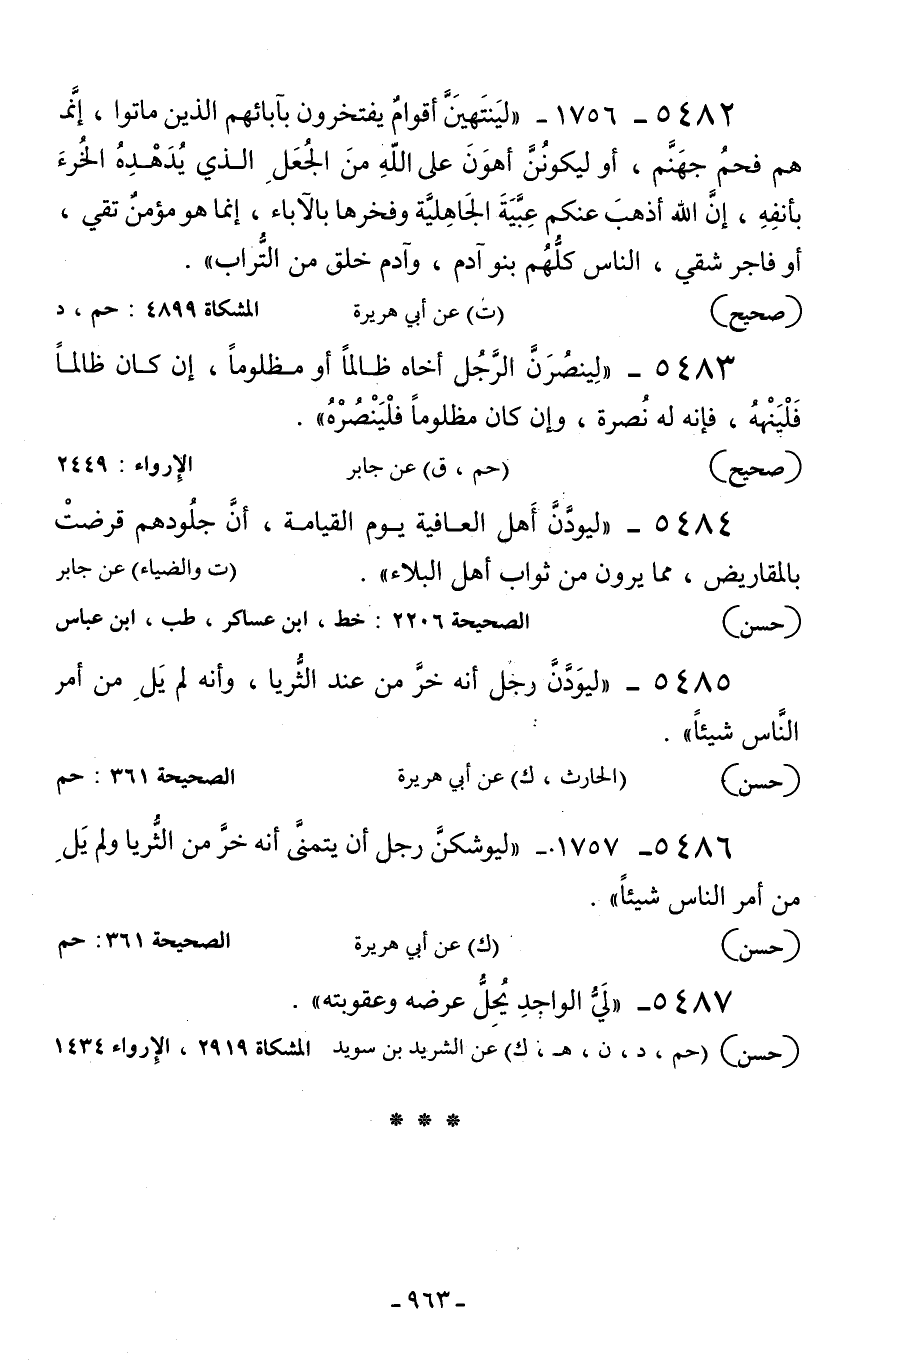 ٥٤٨٢ ـ ١٧٥٦ ـ «ليَنتَهينَّ أقوامٌ يفتخرون بآبائهم الذين ماتوا ، إنَّما
هم فحمُ جهَنَّم ، أو ليكونُنَّ أهوَنَ على اللّهِ منَ الجُعَلِ الـذي يُدَهْـدِهُ الخُرءَ
بأنفِهِ ، إنَّ الله أذهبَ عنكم عِبَّيَةَ الجَاهليَّة وفخرها بالآباء ، إنما هو مؤمنٌ تقي ،
أو فاجر شقي ، الناس كلُّهُم بنو آدم ، وآدم خلق من التُّراب» .
(صحيح) (ت) عن أبي هريرة المشكاة ٤٨٩٩ : حم ، د
٥٤٨٣ ـ «لِينصُرَنَّ الرَّجُل أخاه ظـالماً أو مـظلوماً ، إن كـان ظالمـاً
فَلْيَنْهَهُ ، فإنه له نُصرة ، وإن كان مظلوماً فلْيَنْصُرْهُ» .
(صحيح) (حم ، ق) عن جابر الإرواء : ٢٤٤٩
٥٤٨٤ ـ «ليودَّنَّ أَهل العـافية يـوم القيامـة ، أنَّ جلُودهم قرضتْ
بالمقاريض ، مما يرون من ثواب أهل البلاء» . (ت والضياء) عن جابر
(حسن) الصحيحة ٢٢٠٦ : خط ، ابن عساكر ، طب ، ابن عباس
٥٤٨٥ ـ «ليوَدَّنَّ رجُل أنه خرَّ من عند الثُّريا ، وأنه لم يَلِ من أمر
النَّاس شيئاً» .
(حسن) (الحارث ، ك) عن أبي هريرة الصحيحة ٣٦١ : حم
٥٤٨٦ـ ١٧٥٧ـ «ليوشكنَّ رجل أن يتمنَّى أنه خرَّ من الثُّريا ولم يَلِ
من أمر الناس شيئاً» .
(حسن) (ك) عن أبي هريرة الصحيحة ٣٦١: حم
٥٤٨٧ـ «لَيُّ الواجدِ يُحِلُّ عرضه وعقوبته» .
(حسن) (حم ، د ، ن ، هـ ، ك) عن الشريد بن سويد المشكاة ٢٩١٩ ، الإرواء ١٤٣٤
* * *
ـ ٩٦٣ ـ